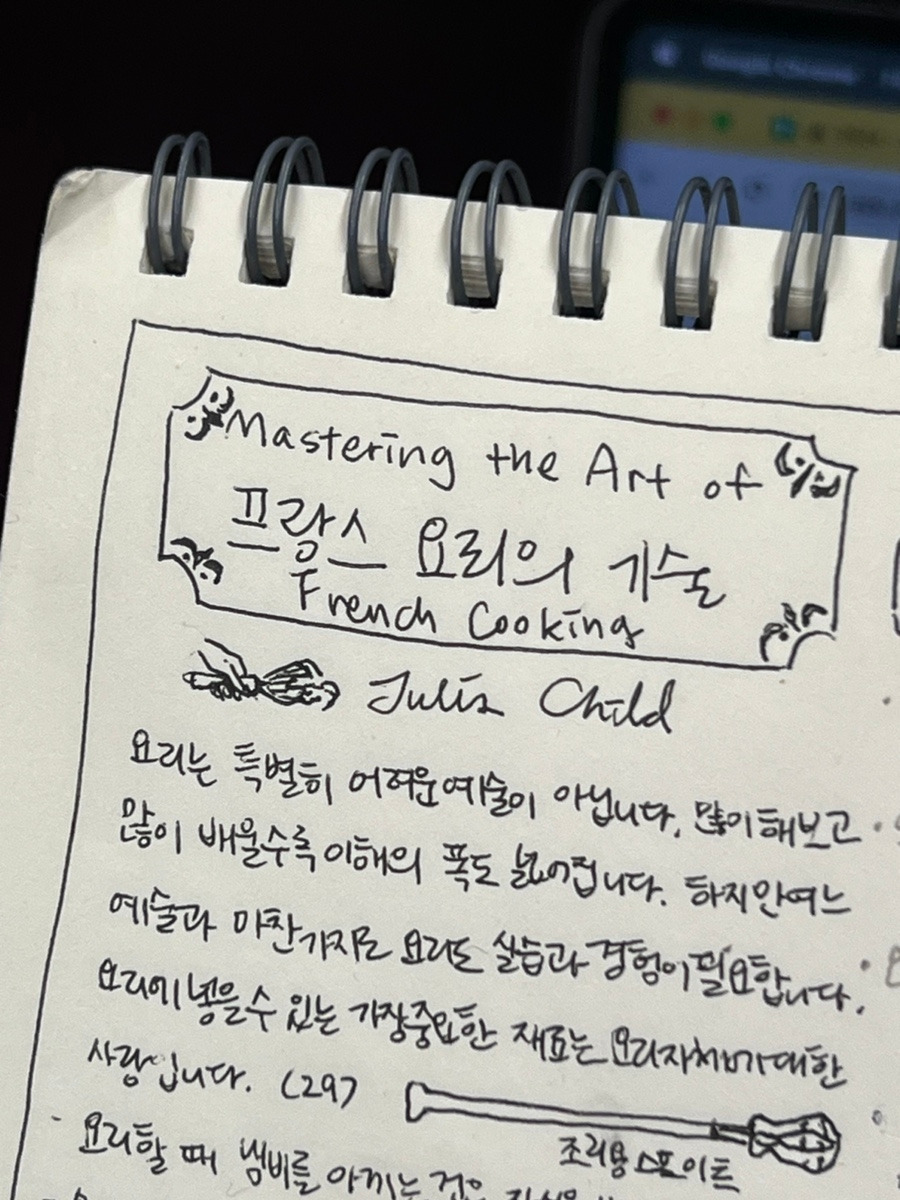 Mastering the Art of
프랑스 요리의 기술
French Cooking
Julia Child
요리는 특별히 어려운 예술이 아닙니다. 많이 해보고
많이 배울수록 이해의 폭도 넓어집니다. 하지만 여느
예술과 마찬가지로 요리도 실습과 경험이 필요합니다.
요리에 넣을 수 있는 가장 중요한 재료는 요리 자체에 대한
사랑입니다. (297
조리용 스포이트
요리할 때 냄비를 아끼는 것은